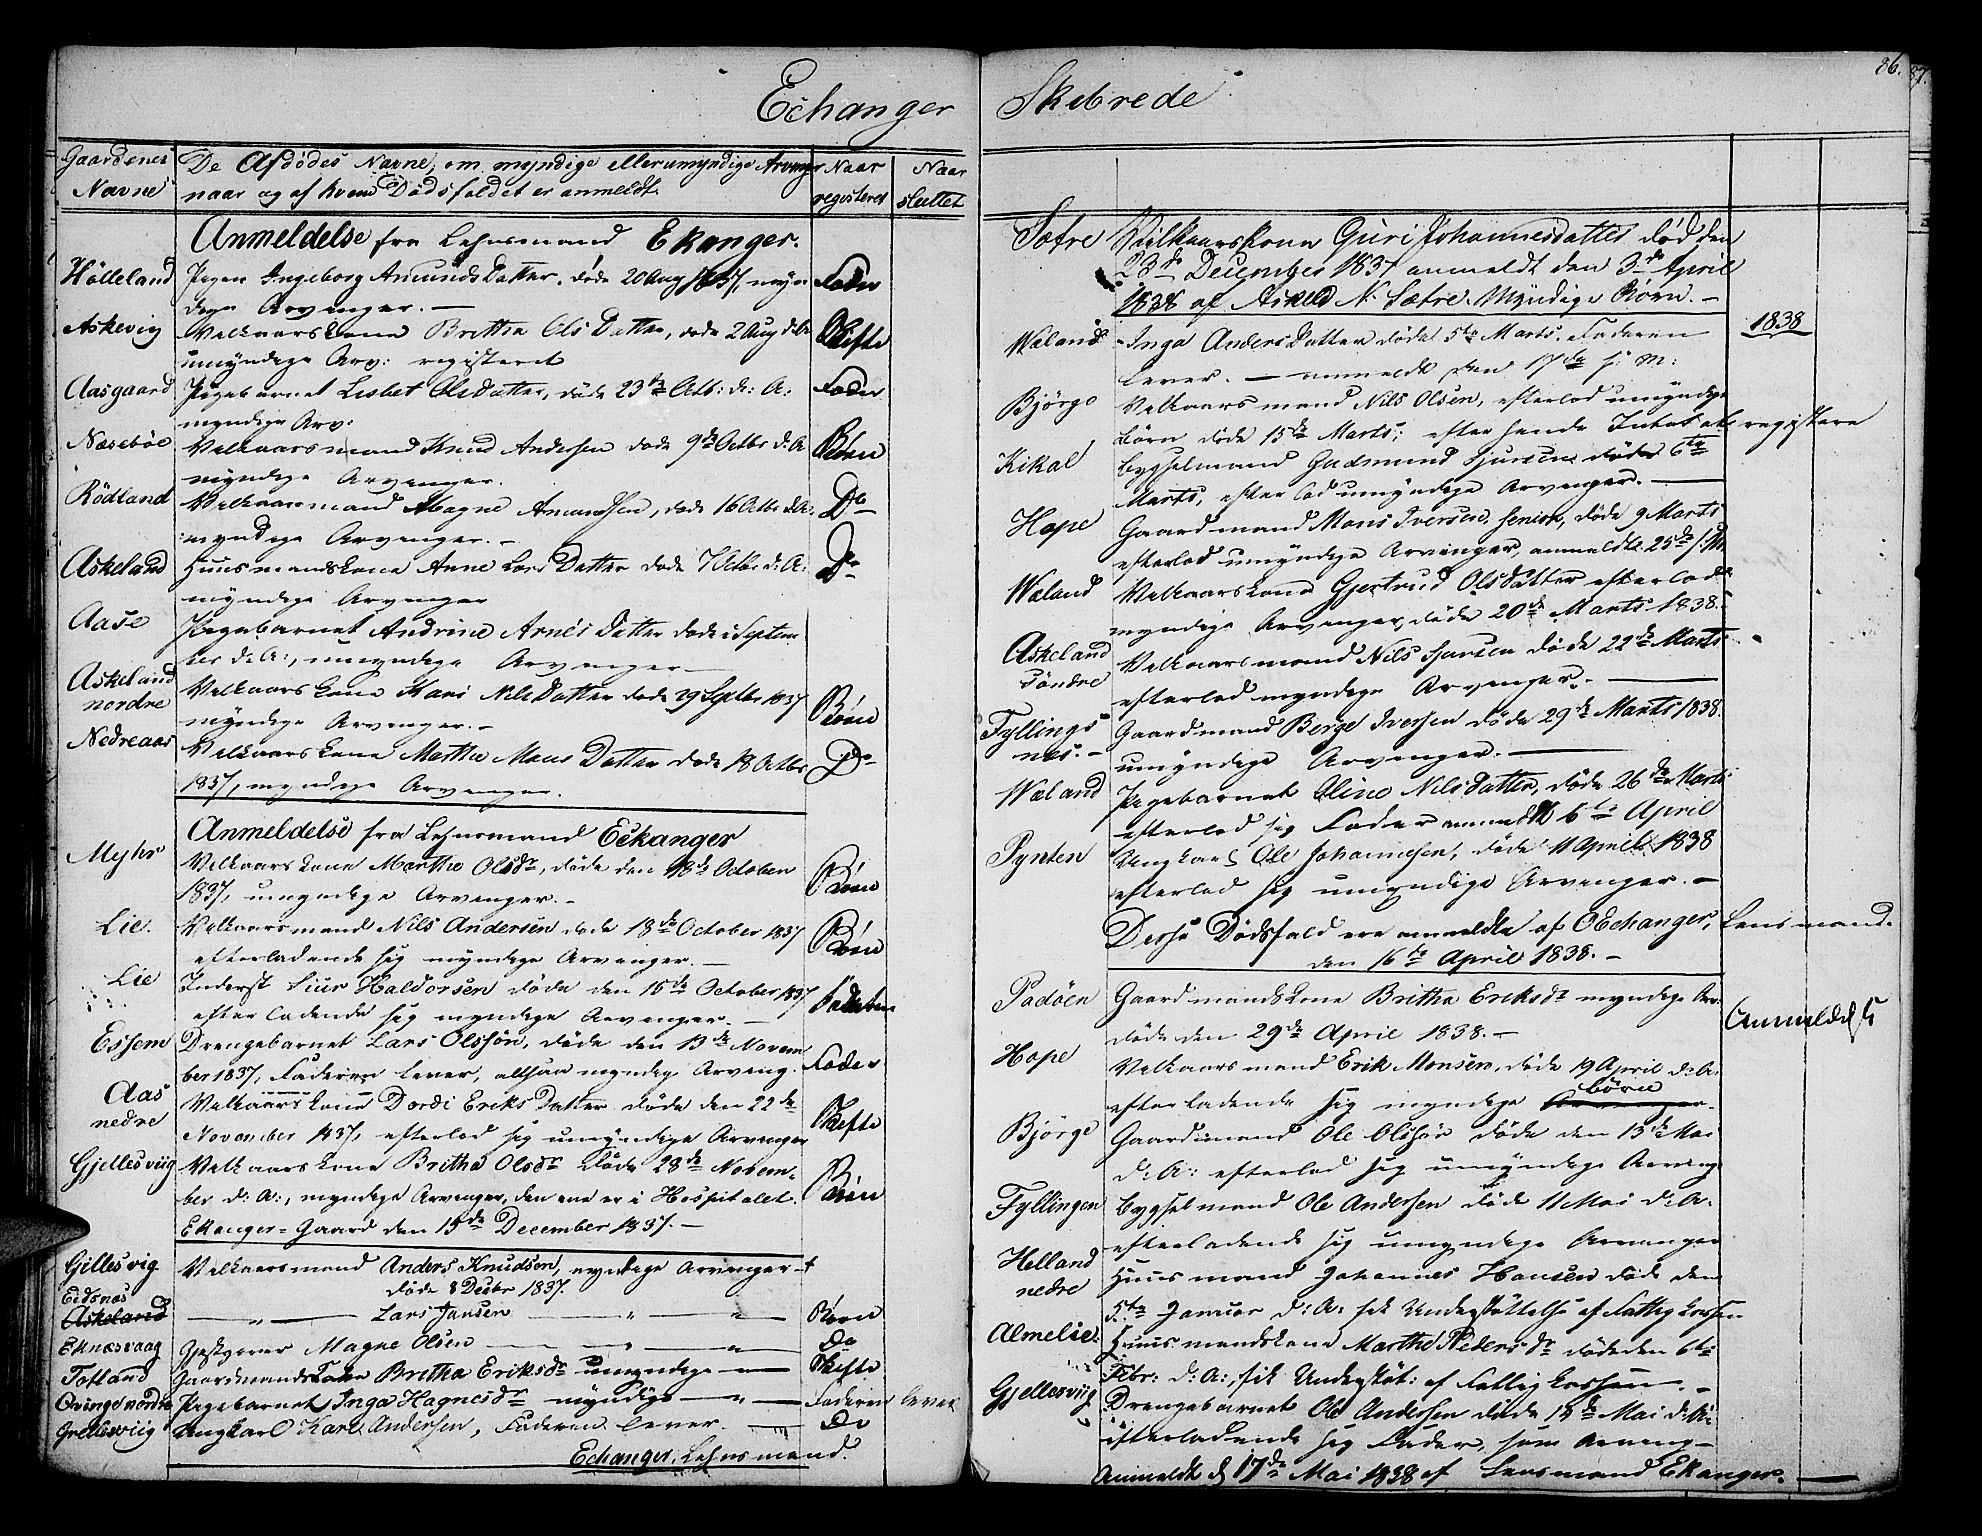 Echanger Skibrede
86.
87.
Gaardenes Navne
De Afdødes Navne, om myndige eller umyndige Arvinger
naar og af hvem Dødsfaldet er anmeldt.
Naar registeret
Naar sluttet
Anmeldelse fra Lehnsmand Ekanger.
Hölleland Pigen Ingeborg Amunds Datter, døde 20 Aug 1837, myn Fader
dege Arvenger. —
Askevig Velkaarskone Brittha Ols Datter, døde 2 Aug d: A: Skifte
umyndege Arv: registeret
Aasgaard Pigebarnet Lisbet Ols Datter, døde 23de Octb: d: A: Fader
myndige Arv:
Næseböe Velkaarsmand Knud Andersen døde 9de Octbr d: A Börn
myndege Arvenger.
Rödland Velkaarsmand Magne Amundsen, døde 16 Octbr d: A: Do
myndege Arvenger. —
Askeland Huusmandskone Anne Lars Datter døde 7 Octbr d: A: Do
myndege Arvenger
Aase Pigebarnet Andrine Arnes Datter døde i Septem
ber d: A:, umyndege Arvenger —
Askeland nordre Velkaarskone Kari Nils Datter døde 29 Septbr 1837 Börn
myndege Arvenger. —
Nedreaas Velkaarskone Martha Mons Datter døde 18 Octbr Do
1837, myndege Arvenger.
Anmeldelse fra Lehnsmand Eckanger
Myhr Velkaarskone Martha Olsdr, døde den 18de October Börn
1837, umyndege Arvenger. —
Lie. Velkaarsmand Nils Andersen døde 18de October 1837 Börn
efterladende sig myndege Arvenger. —
Lie Inderst Siur Haldorsen døde den 15de October 1837
efterladende sig myndege Arvenger. —
Essem Drengebarnet Lars Olssön, døde den 13de Novem Fader
ber 1837, Faderen lever, altsaa myndege Arving.
Aas nedre Velkaarskone Dordi Eriks Datter døde den 22de Skifte
November 1837, efterlod sig umyndege Arvenger
Gjellesviig Velkaarskone Britha Olsdr døde 28de Novem- Börn
ber d: A:, myndege Arvenger, den ene er i Hospitalet.
Ekanger-Gaard den 15de December 1837. —
Gillesvig Velkaarsmand Anders Knudsen, myndege Arvinger †
døde 8 Decbr 1837.
Eidsnes
Askeland —〃— Lars Jansen 〃 〃 Börn
Eknæsvaag Magne Olsen — 〃 — Do
Totland Gaardmandskone Britha Eriksdr umyndege — Skifte
Qvinge nordre Pigebarnet Inga Hagnesdr myndige — 〃 — Faderen lever
Gjellesviig Ungkarl Karl Andersen, Faderen lever — Do
Echanger, Lehnsmand.
Sætre Vilkaarskona Guri Johannesdatter død den
23de December 1837 anmeldt den 3de April
1838 af Askeld N. Sætre. Myndige Börn. —
1838
Wæland Inga Anders Datter døde 5te Marts. Faderen
lever. — anmeldt den 17de s: M:
Björge Velkaarsmand Nils Olsen, efterlod umyndege
Börn døde 15de Marts; efter sende Intet at registere
Kikal Bygselmand Gudmund Sjursen døde 6te
Marts, efterlod umyndege Arvenger. —
Hope Gaardmand Mons Iversen senior, døde 9 Marts
efterlod umyndege Arvinger, anmeldte 25de s: M
Wæland Velkaarskone Gjertrud Olsdatter efterlod
myndige Arvenger, døde 20de Marts 1838.
Askeland söndre Velkaarsmand Nils Sjursen døde 22de Marts
efterlod myndege Arvenger. —
Fyllingsnes. — Gaardmand Berge Iversen døde 29de Marts 1838.
umyndege Arvenger. —
Wæland Pigebarnet Oline Nils Datter, døde 26de Marts
efterlod sig Fader anmeldt 6te April
Pynten Ungkarl Ole Johannesen, døde 11 April 1838
efterlod sig umyndige Arvenger. —
Disse Dødsfald ere anmeldte af O Echanger, Lensmand.
den 16te April 1838. —
Padöen Gaardmandskone Britha Eriksdr myndige Arv: Anmeldels
døde den 29de April 1838. —
Hope Velkaarsmand Erik Monsen, døde 19 April d: A:
efterladende sig myndige Arvenger börn
Björge Gaardsmand Ole Olssön døde den 13de Mai
d: A: efterlod sig umyndige Arving
Fyllingen Bygselmand Ole Andersen døde 11 Mai d: A:
efterladende sig umyndege Arvenger
Helland nedre Huusmand Johannes Hansen døde den
5te Januar d: A: fik Understöttelse af Fattigkassen
Almelie Huusmandskone Marthe Pedersdr døde den 6te
Febr: d: A:, fik Understöt: af Fattigkassen. —
Gjellesviig Drengebarnet Ole Andersen døde 15de Mai d: A:
efterladende sig Fader, som Arving —
Anmeldt d 17de Mai 1838 af Lensmand Ekanger. —